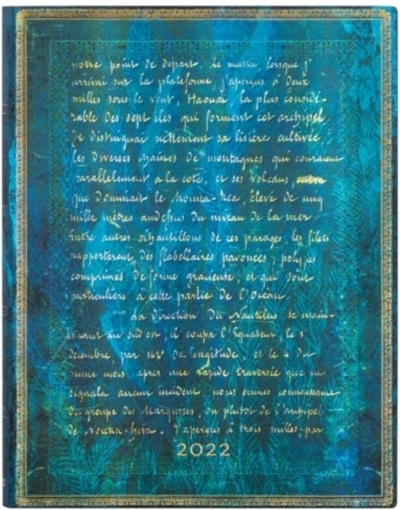 notre point de départ, le matin lorsque j'
arrivai sur la plateforme, j'aperçus à Deux
milles sous le vent, Haouaï, la plus considé-
rable Des sept iles qui forment cet archipel.
Je distinguai nettement sa lisière cultivée,
les Diverses chaines de montagnes qui couraient
parallelement a la cote, et ses volcans,
que Dominait le Mouna-Rea, éleve de cinq
mille mètres audessus Du niveau de la mer
Entre autres échantillons de ces parages, les filets
rapporterent, Des flabellaires pavonees, polypes
comprimes de forme gracieuse, et qui sont
particuliers a cette partie De l'Ocean.
La Direction Du Nautilus se main-
tenait au sud est, il coupa l'Equateur, le 1
decembre, par 142° De longitude, et le 4 du
meme mois, apres une rapide traversée que ne
signala aucun incident, nous eumes connaissance
du groupe des Marquises,
de Nouka-hiva. J'aperçus à trois milles par
2022